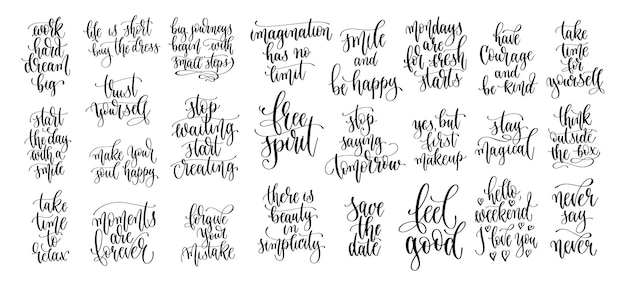 work
hard
dream
big
life is short
buy the dress
big journeys
begin with
small steps
imagination
has no
limit
smile
and
be happy
mondays
are
for fresh
starts
have
courage
and
be kind
take
time
for
yourself
trust
yourself
start
the day
with a
smile
make your
soul happy
stop
waiting
start
creating
free
spirit
stop
saying
tomorrow
yes, but
first
makeup
stay
magical
think
outside
the box
take
time
to
relax
moments
are
forever
forgive
your
mistake
there is
beauty
in
simplicity
save
the
date
feel
good
hello,
weekend
I love you
never
say
never